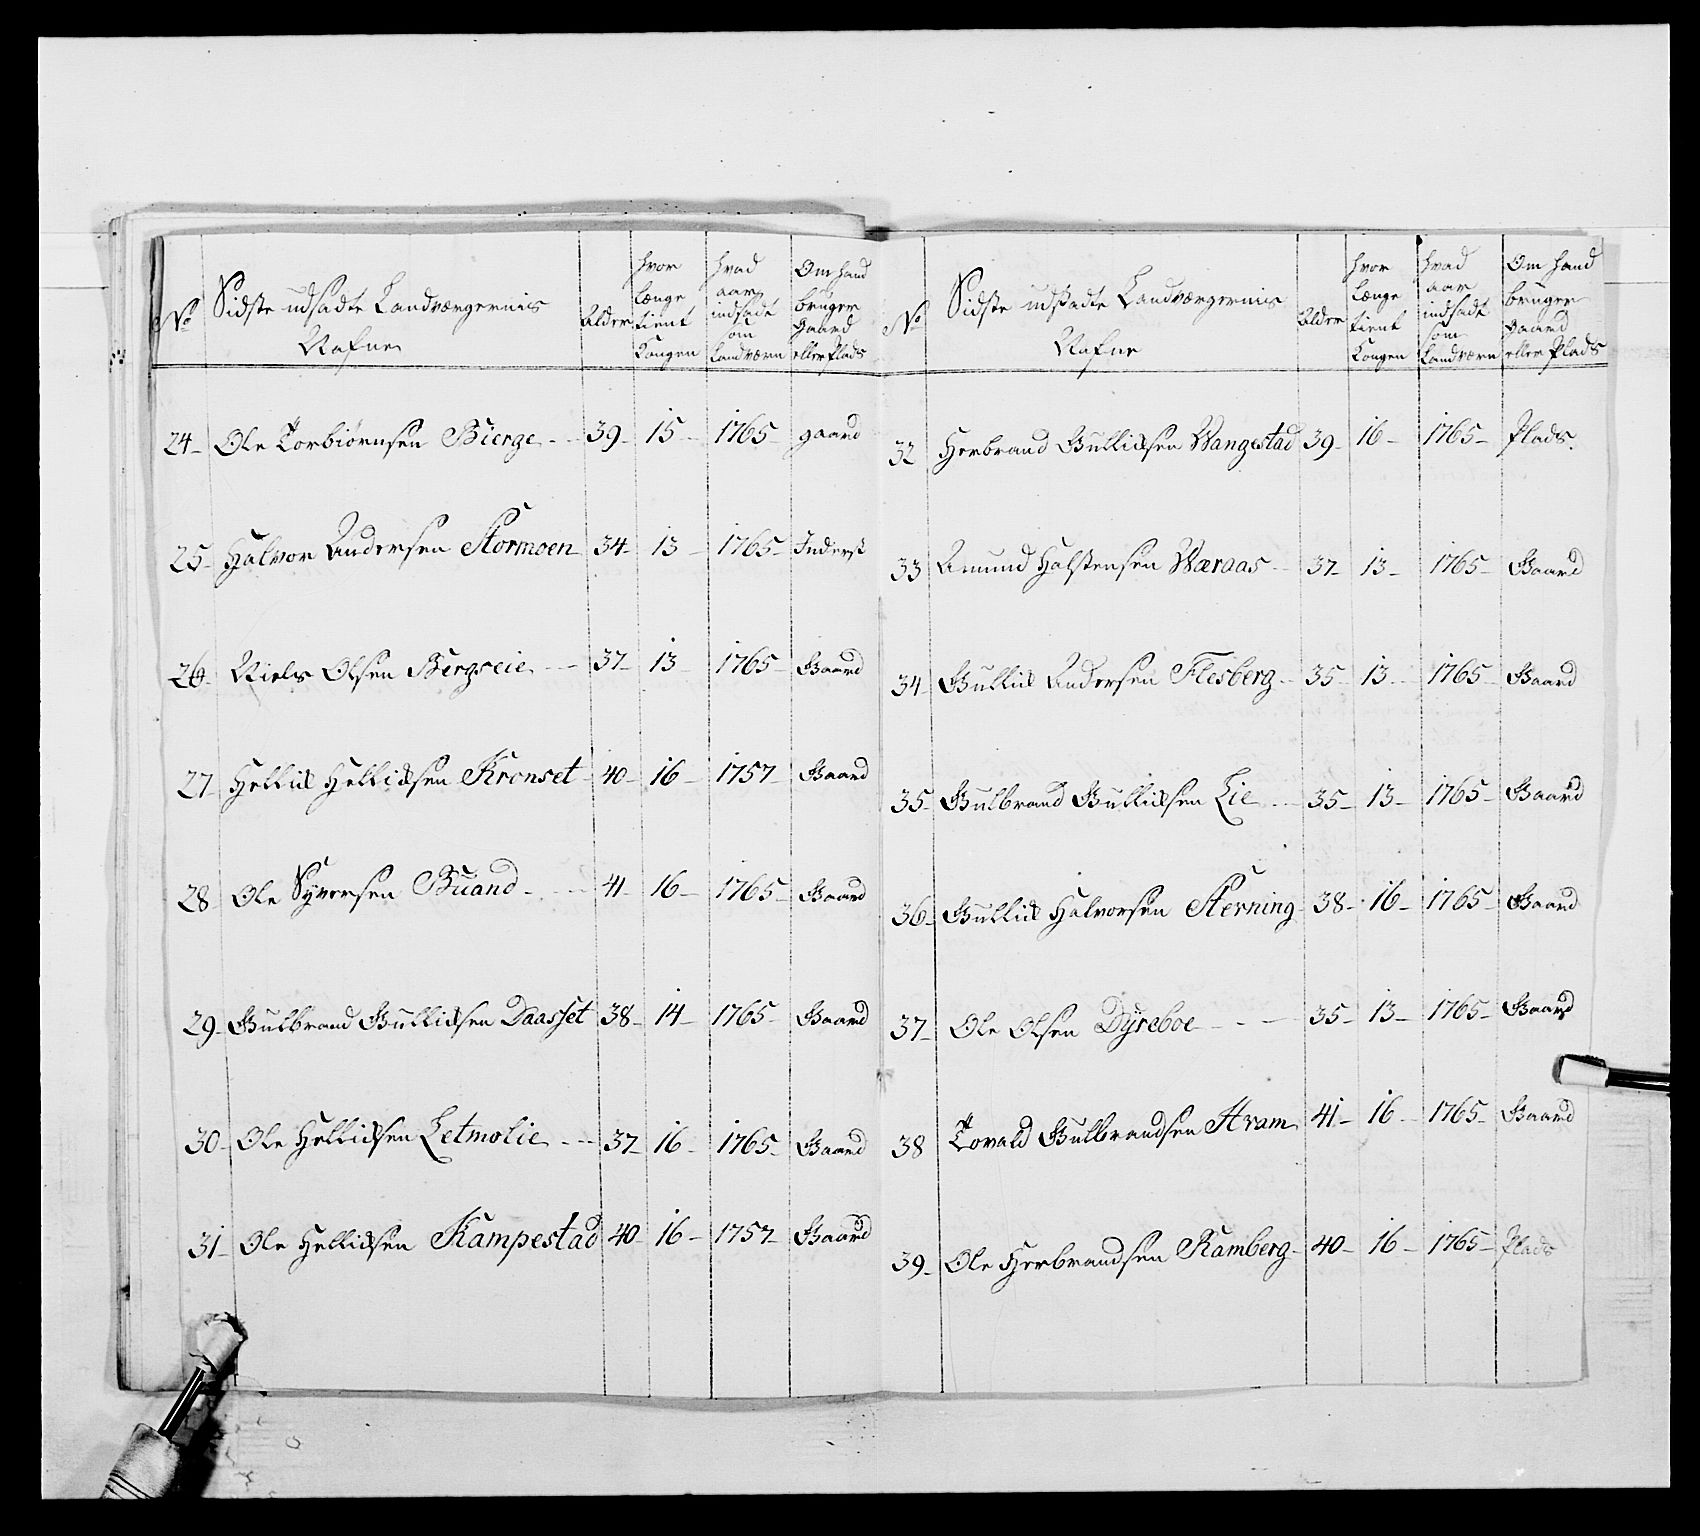 No
Sidste udsadte Landværgernis Nafne
Alder
hvor længe tient Kongen
hvad aar indsadt som Landværn
Om hand bruger gaard eller Plads
24- Ole Torbiørnsen Bierge - - 39- 15- 1765- gaard
25- Halvor Andersen Stormoen 34- 13- 1765- Inderst
26- Niels Olsen Bergseie - - 37- 13- 1765- Gaard
27 Hellic Hellicksen Kronset- 40- 16- 1757- Gaard
28- Ole Syversen Buand - - 41- 16- 1765- Gaard
29- Gulbrand Gullicksen Daasset 38- 14- 1765- Gaard
30- Ole Hellicksen Letmolie - - 37- 16- 1765- Gaard
31- Ole Hellicksen Kampestad 40- 16- 1757- Gaard
No
Sidste udsadte Landværgernis Nafne
Alder
hvor længe tient Kongen
hvad aar indsadt som Landværn
Om hand bruger gaard eller Plads
32 Herbrand Gullicksen Wangestad 39- 16- 1765- Plads.
33 Amund Halstensen Wæraas - 37- 13- 1765- Gaard
34- Gullic Andersen Flesberg - 35- 13- 1765- Gaard
35- Gulbrand Gullicksen Lie - - 35- 13- 1765- Gaard
36- Gullic Halvorsen Sterning 38- 16- 1765- Gaard
37- Ole Olsen Dÿreboe - - - 35- 13- 1765- Gaard
38 Torald Gulbrandsen Hvam 41- 16- 1765- Gaard
39- Ole Herbrandsen Ramberg- 40- 16- 1765- Plads